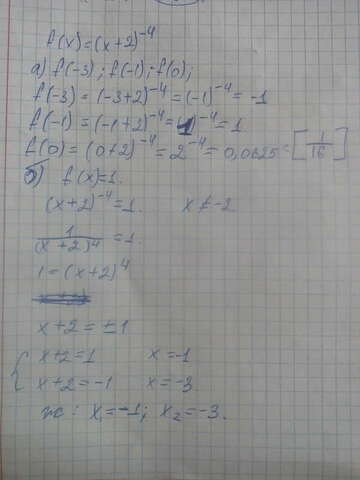 f(x)=(x+2)⁻⁴
а) f(-3); f(-1); f(0);
f(-3) = (-3+2)⁻⁴ = (-1)⁻⁴ = -1
f(-1) = (-1+2)⁻⁴ = (1)⁻⁴ = 1
f(0) = (0+2)⁻⁴ = 2⁻⁴ = 0,0625 = [1/16]
б) f(x)=1.
(x+2)⁻⁴ = 1. x ≠ -2
1/(x+2)⁴ = 1.
1 = (x+2)⁴
x+2 = ±1
{ x+2 = 1 x = -1
x+2 = -1 x = -3
: x₁ = -1; x₂ = -3.